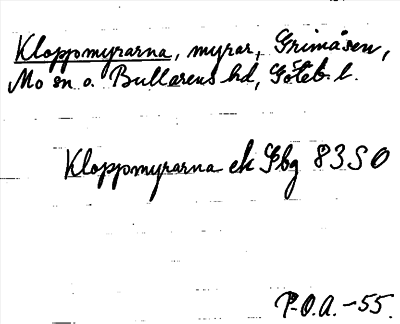 Kloppmyrarna, myrar, Grimåsen,
Mo sn o. Bullarens hd, Göteb. l.
Kloppmyrarna ek Gbg 83 S O
P.O.A. -55.